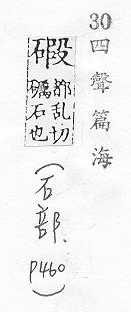 30 四聲篇海
碬
都乱切
礪石也
(石部、P460)